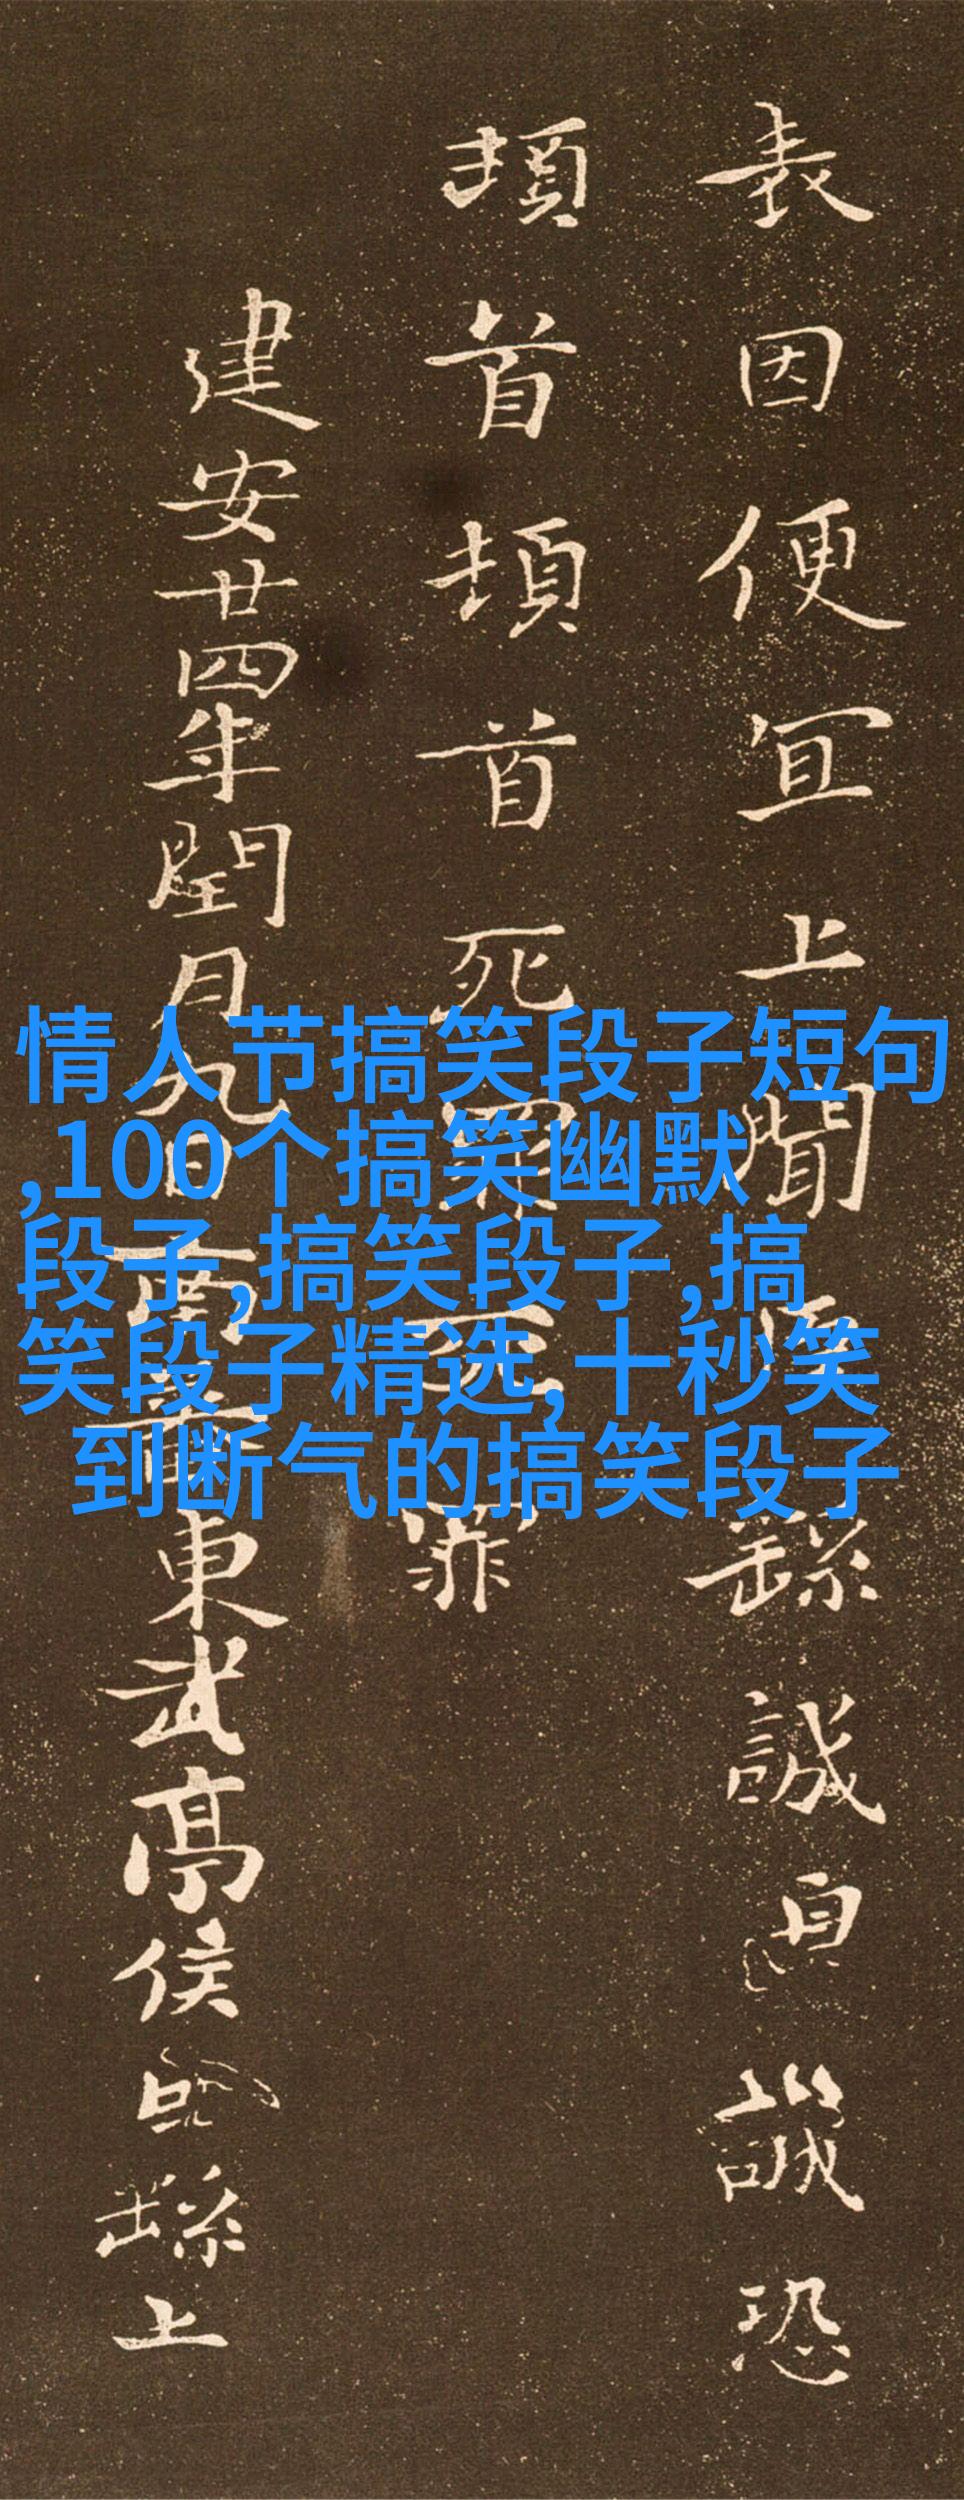 表因便宜上聞臣繇誠自誠恐
頓首頓首死罪死罪
建安廿四年閏月九日南蕃東武亭侯臣繇上
情人节搞笑段子短句
,100个搞笑幽默
段子,搞笑段子,搞
笑段子精选,十秒笑
到断气的搞笑段子